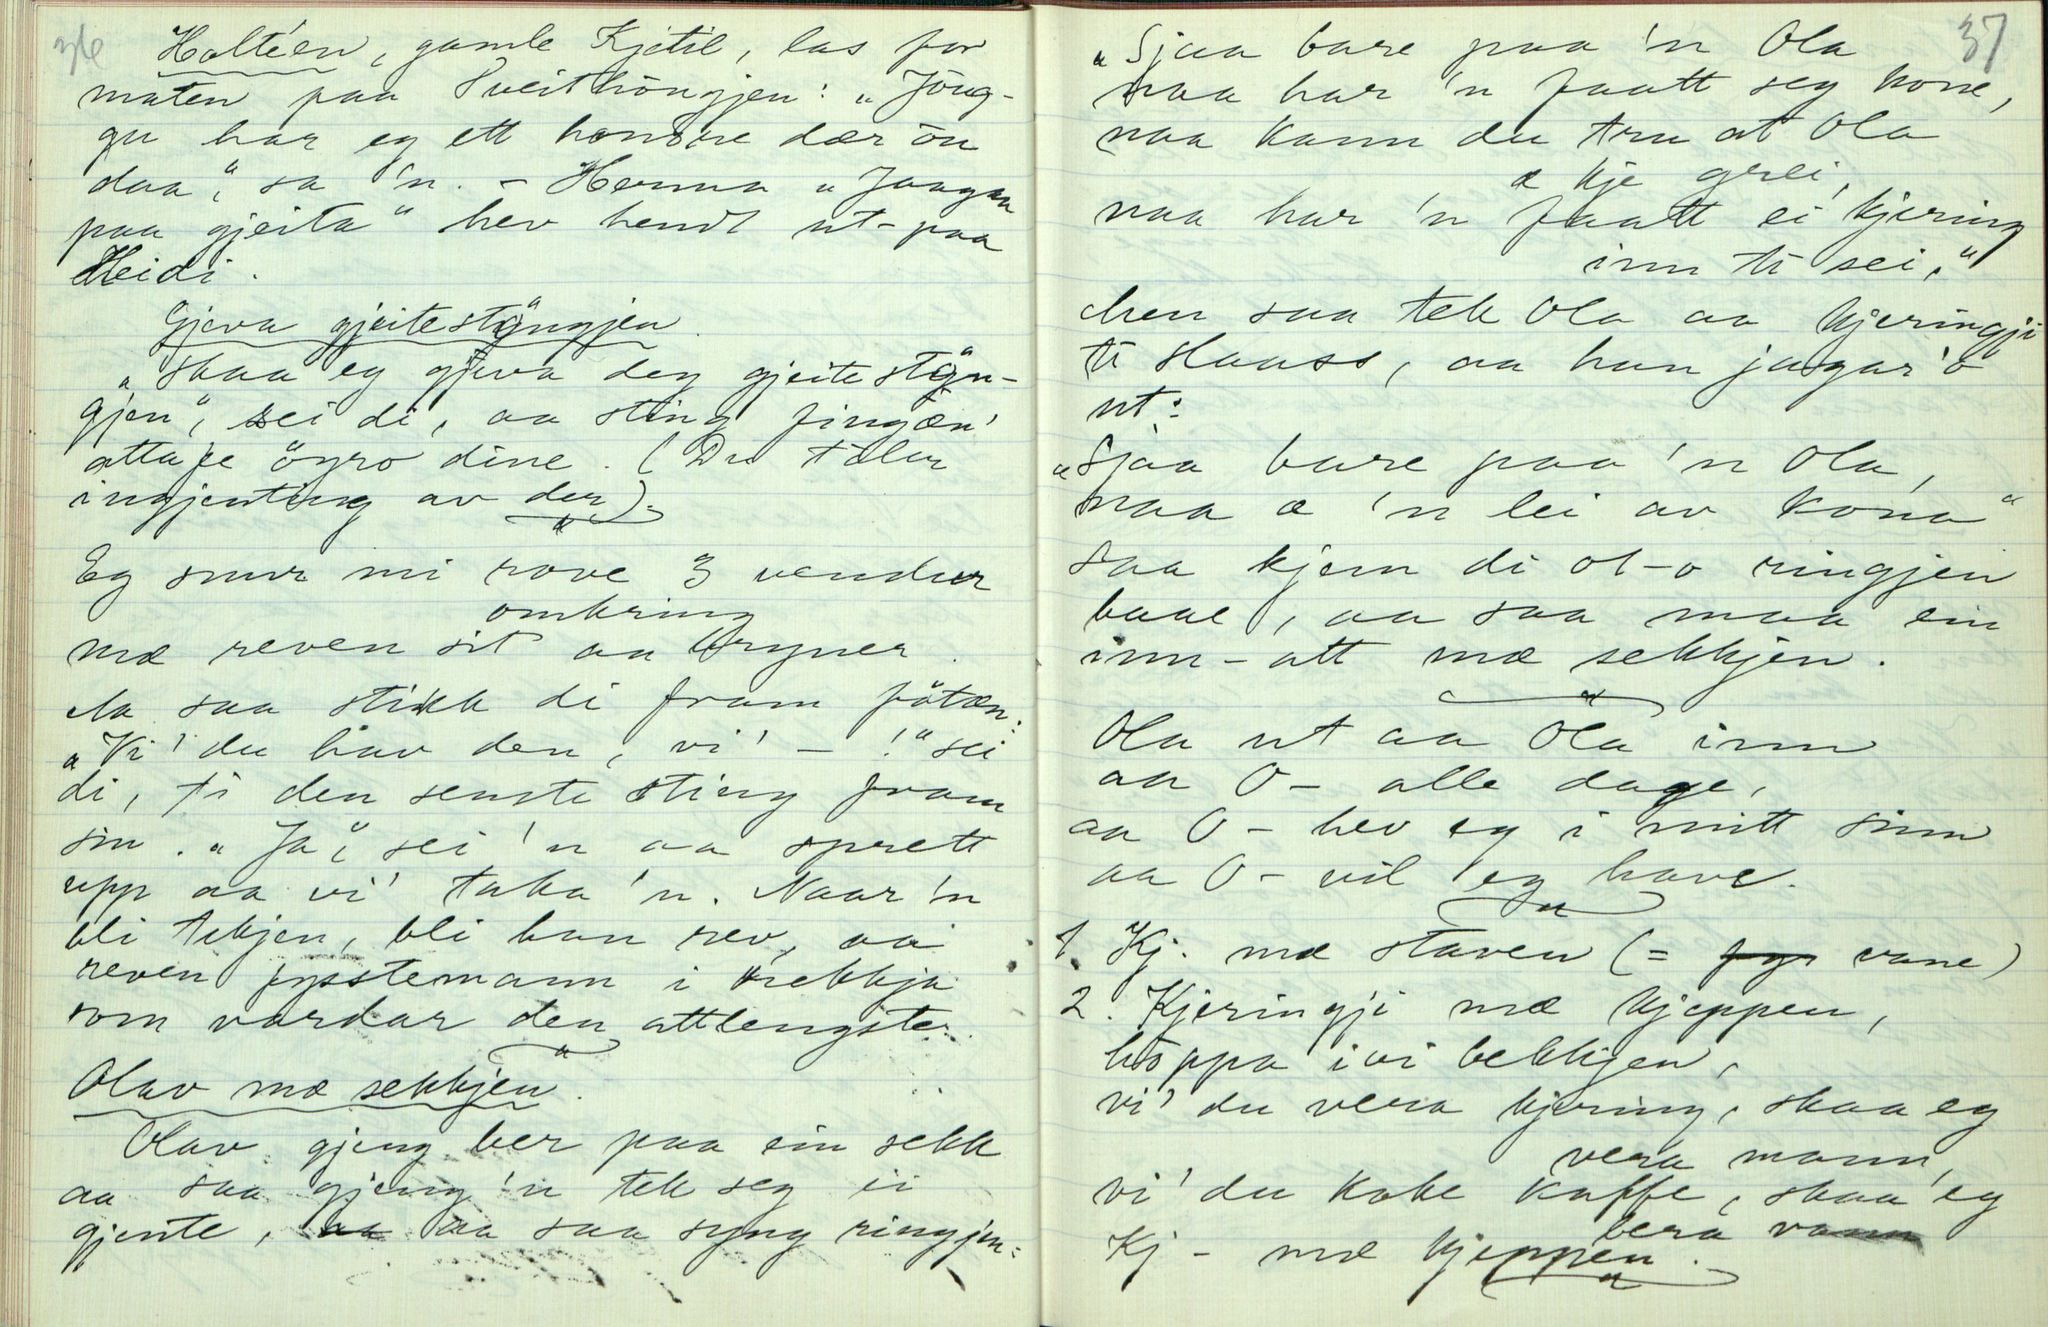 36
Holteen, gamle Kjetil, las for
maten paa Sveithöngjen: „Jöng-
gu har eg ett hondre dær ön
daa“, sa 'n. – Henna „Jaagaa
paa gjeita“ hev hendt ut-paa
Heidi.
Gjeva gjeitestöngjen.
„Skaa eg gjeva deg gjeitestön-
gjen“, sei di, aa sting fingæn'
atta fe öyro dine. (Du tolur
ingjenting av der).
Eg snur mi rove 3 vendur
omkring
mæ reven sit aa gryner.
Aa saa stikk di fram fötæn:
„Vi' du hav den, vi' – !“ sei
di, ti den senste sting fram
sin. „Ja“, sei 'n aa sprett
upp aa vi' taka 'n. Naar 'n
bli tekjen, bli han rev, aa
reven fysstemann i rekkja
som vardar den attlengste.
Olav mæ sekkjen.
Olav gjeng ber paa ein sekk
aa saa gjeng 'n tek seg ei
gjente, aa aa saa syng ringjen:
37
„Sjaa bare paa 'n Ola
naa har 'n faatt seg kone,
naa kann du tru at Ola
æ kje grei,
naa har 'n faatt ei kjering
inn ti sei.“
Men saa tek Ola aa kjeringji
ti slaass, aa han jagar 'o
ut:
„Sjaa bare paa 'n Ola,
naa æ 'n lei av kona“
Saa kjem di ot-o ringjen
baae, aa saa maa ein
inn-att mæ sekkjen.
Ola ut aa Ola inn
aa O– alle dage,
aa O– hev eg i mitt sinn
aa O– vil eg have.
1. Kj. mæ staven (= fyr vane)
2. Kjeringji mæ kjeppen,
höppa ivi bekkjen,
vi' du vera kjering, skaa eg
vera mann,
vi' du koke kaffe, skaa eg
bera vann
Kj – mæ kjeppen.